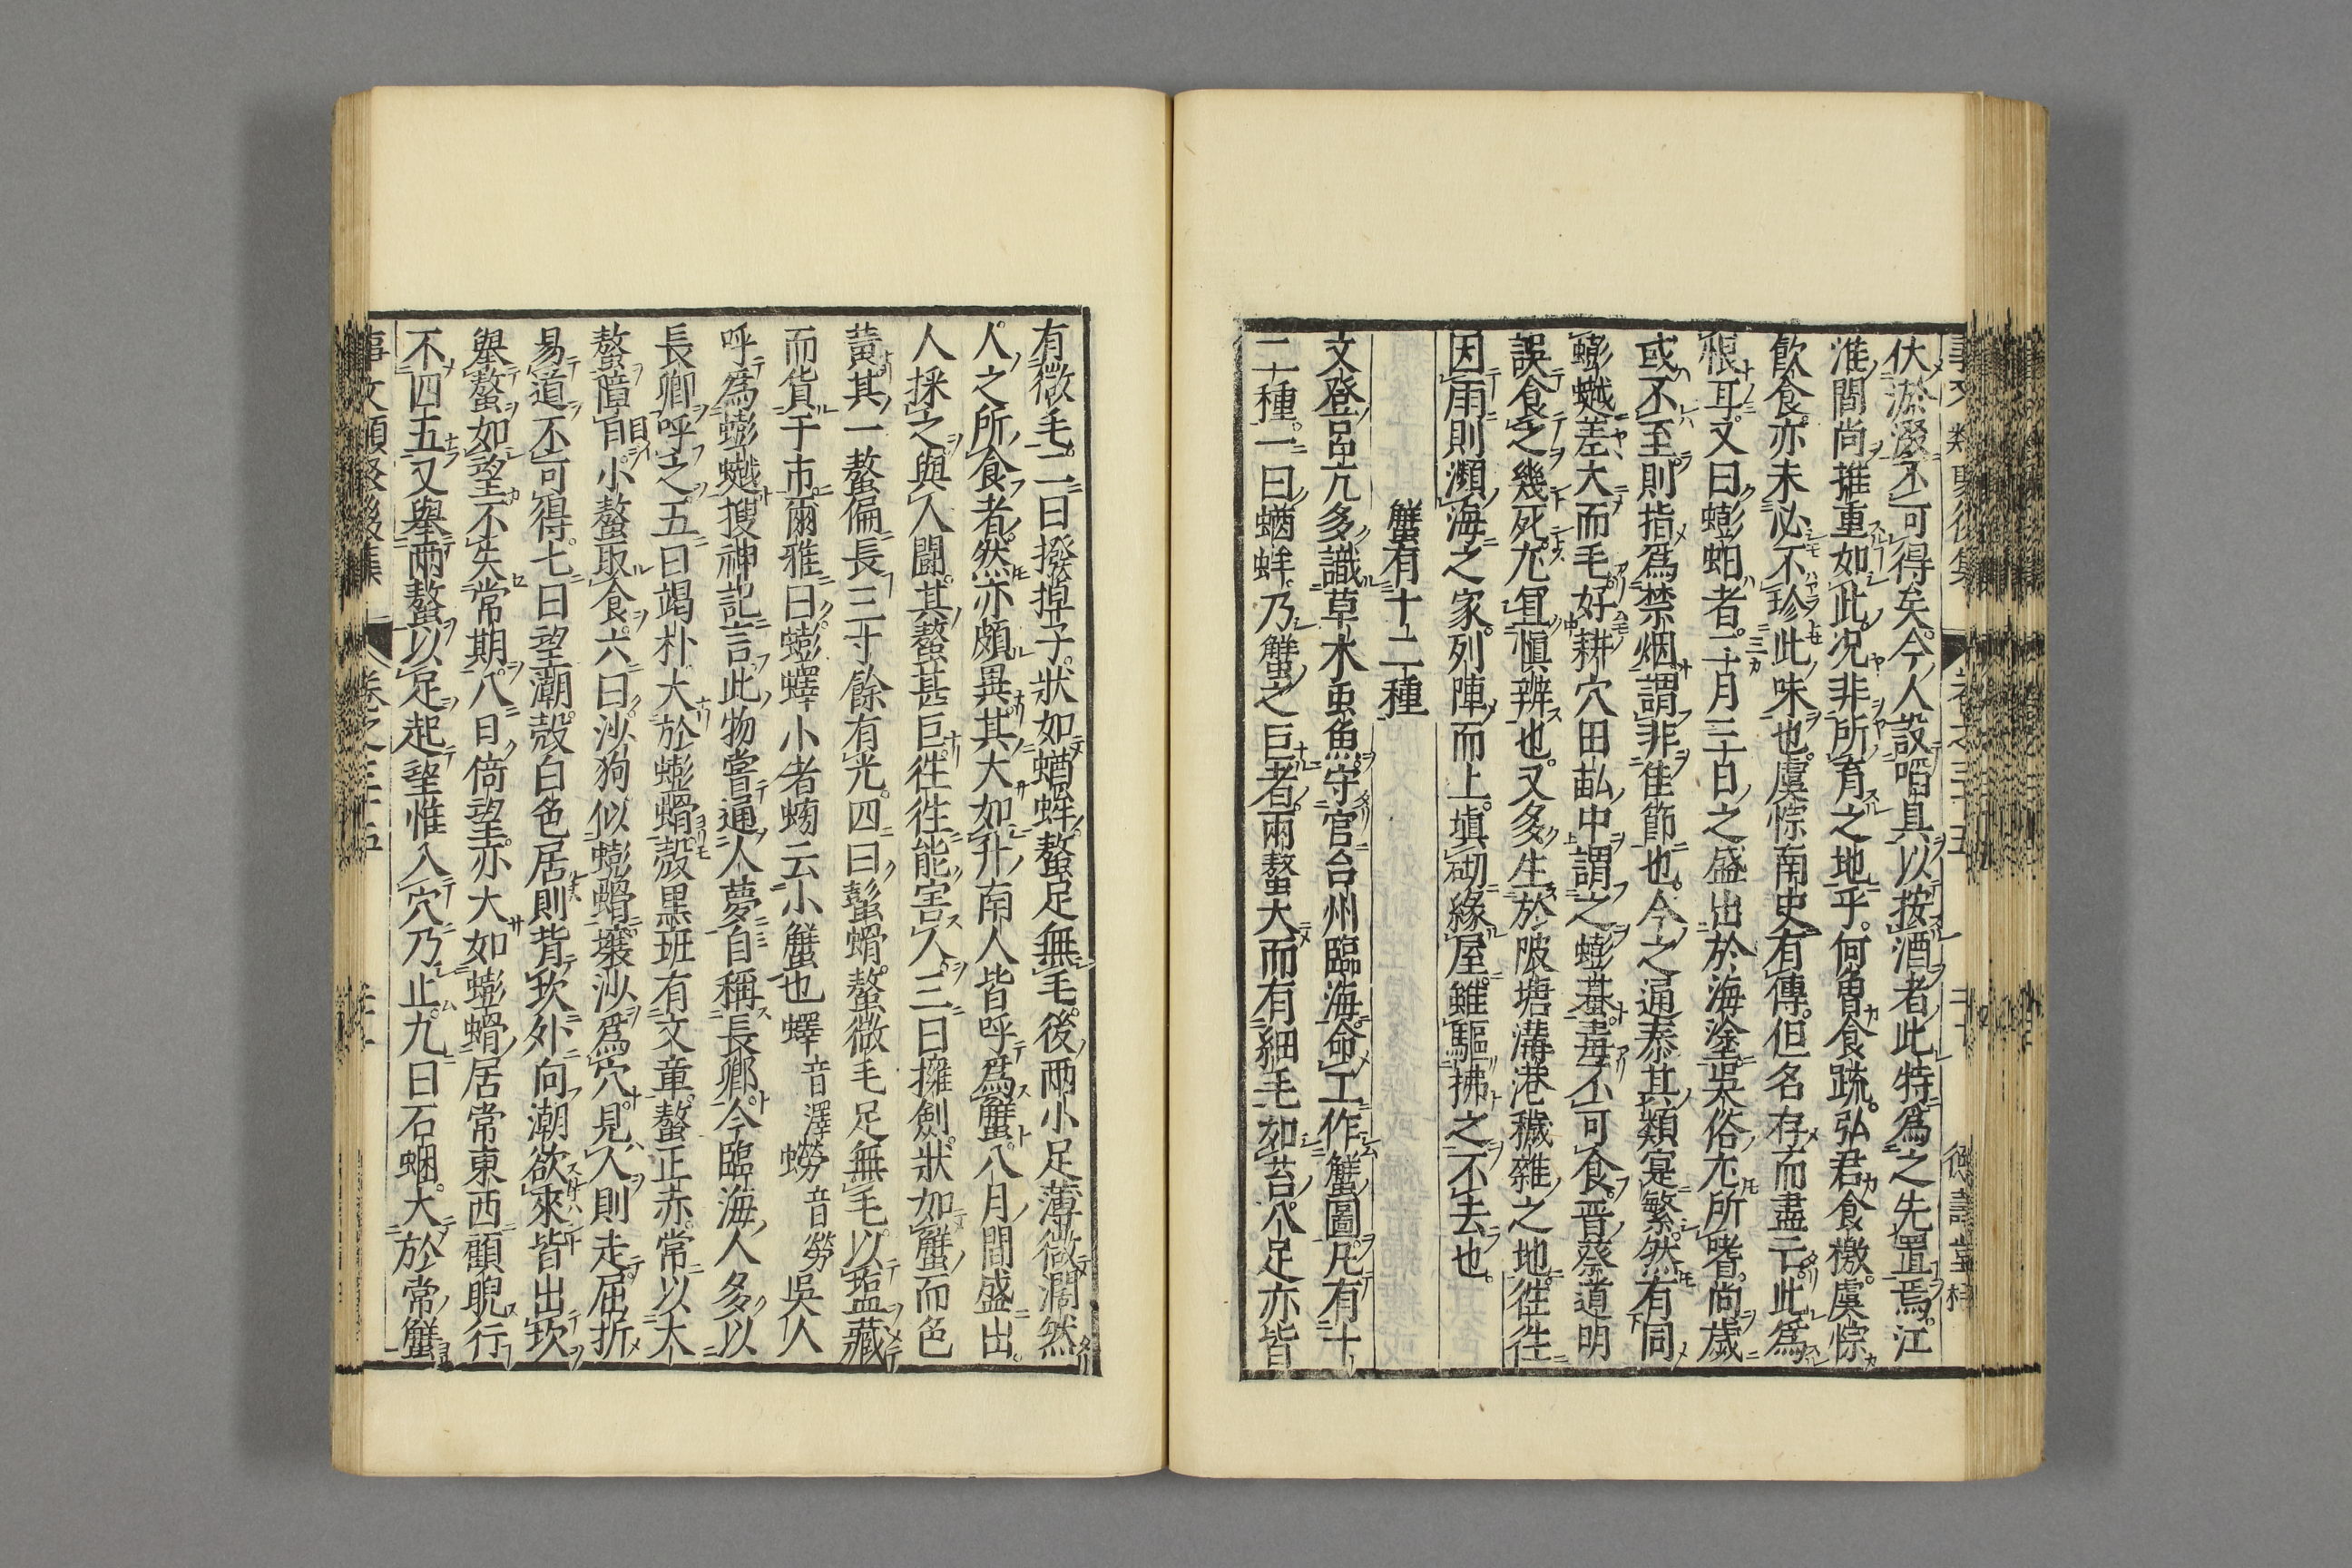 伏淤濲不可得矣今人設啗具以按酒者此特爲之先置焉江
淮間尚推重如此况非所育之地乎何魯食疏弘君食檄虞悰
飲食亦未必不珍此味也虞悰南史有傳但名存而盡云此爲
恨耳又曰蟛蚎者二十月三十日之盛出於海塗吳俗尤所嗜尚歲
或不至則指爲禁烟謂非佳節也今之通泰其類寔繁然有同
蟛𧑅差大而毛好耕穴田畝中謂之蟛蜞毒不可食晋蔡道明
誤食之幾死尤冝愼辨也又多生於陂塘溝港穢雜之地徃徃
因雨則瀕海之家列陣而上塡砌緣屋雖驅拂之不去也
蟹有十二種
文登呂亢多識草木虫魚守官台州臨海命工作蟹圖凡有十
二種一曰蝤蛑乃蟹之巨者兩螯大而有細毛如苔八足亦皆
有微毛二曰撥掉子狀如蝤蛑螯足無毛後兩小足薄微濶然
人之所食者然亦頗異其大如升南人皆呼爲蟹八月間盛出
人採之與人鬪其螯甚巨徃徃能害人三曰擁劍狀如蟹而色
黃其一螯偏長三寸餘有光四曰彭蝟螯微毛足無毛以鹽藏
而貨于市爾雅曰蟛蠌小者蟧云小蟹也蠌音澤蟧音勞吳人
呼爲蟛𧑅搜神記言此物嘗通人夢自稱長卿今臨海人多以
長卿呼之五曰竭朴大於蟛蝟殼黑班有文章螯正赤常以大
螯障目小螯取食六曰沙狗似蟛蝟壤沙爲穴見人則走屈折
易道不可得七曰望潮殼白色居則背坎外向潮欲來皆出坎
舉螯如望不失常期八曰倚望亦大如蟛蝟居常東西顧睨行
不四五又舉兩螯以足起望惟入穴乃止九曰石蜠大於常蟹